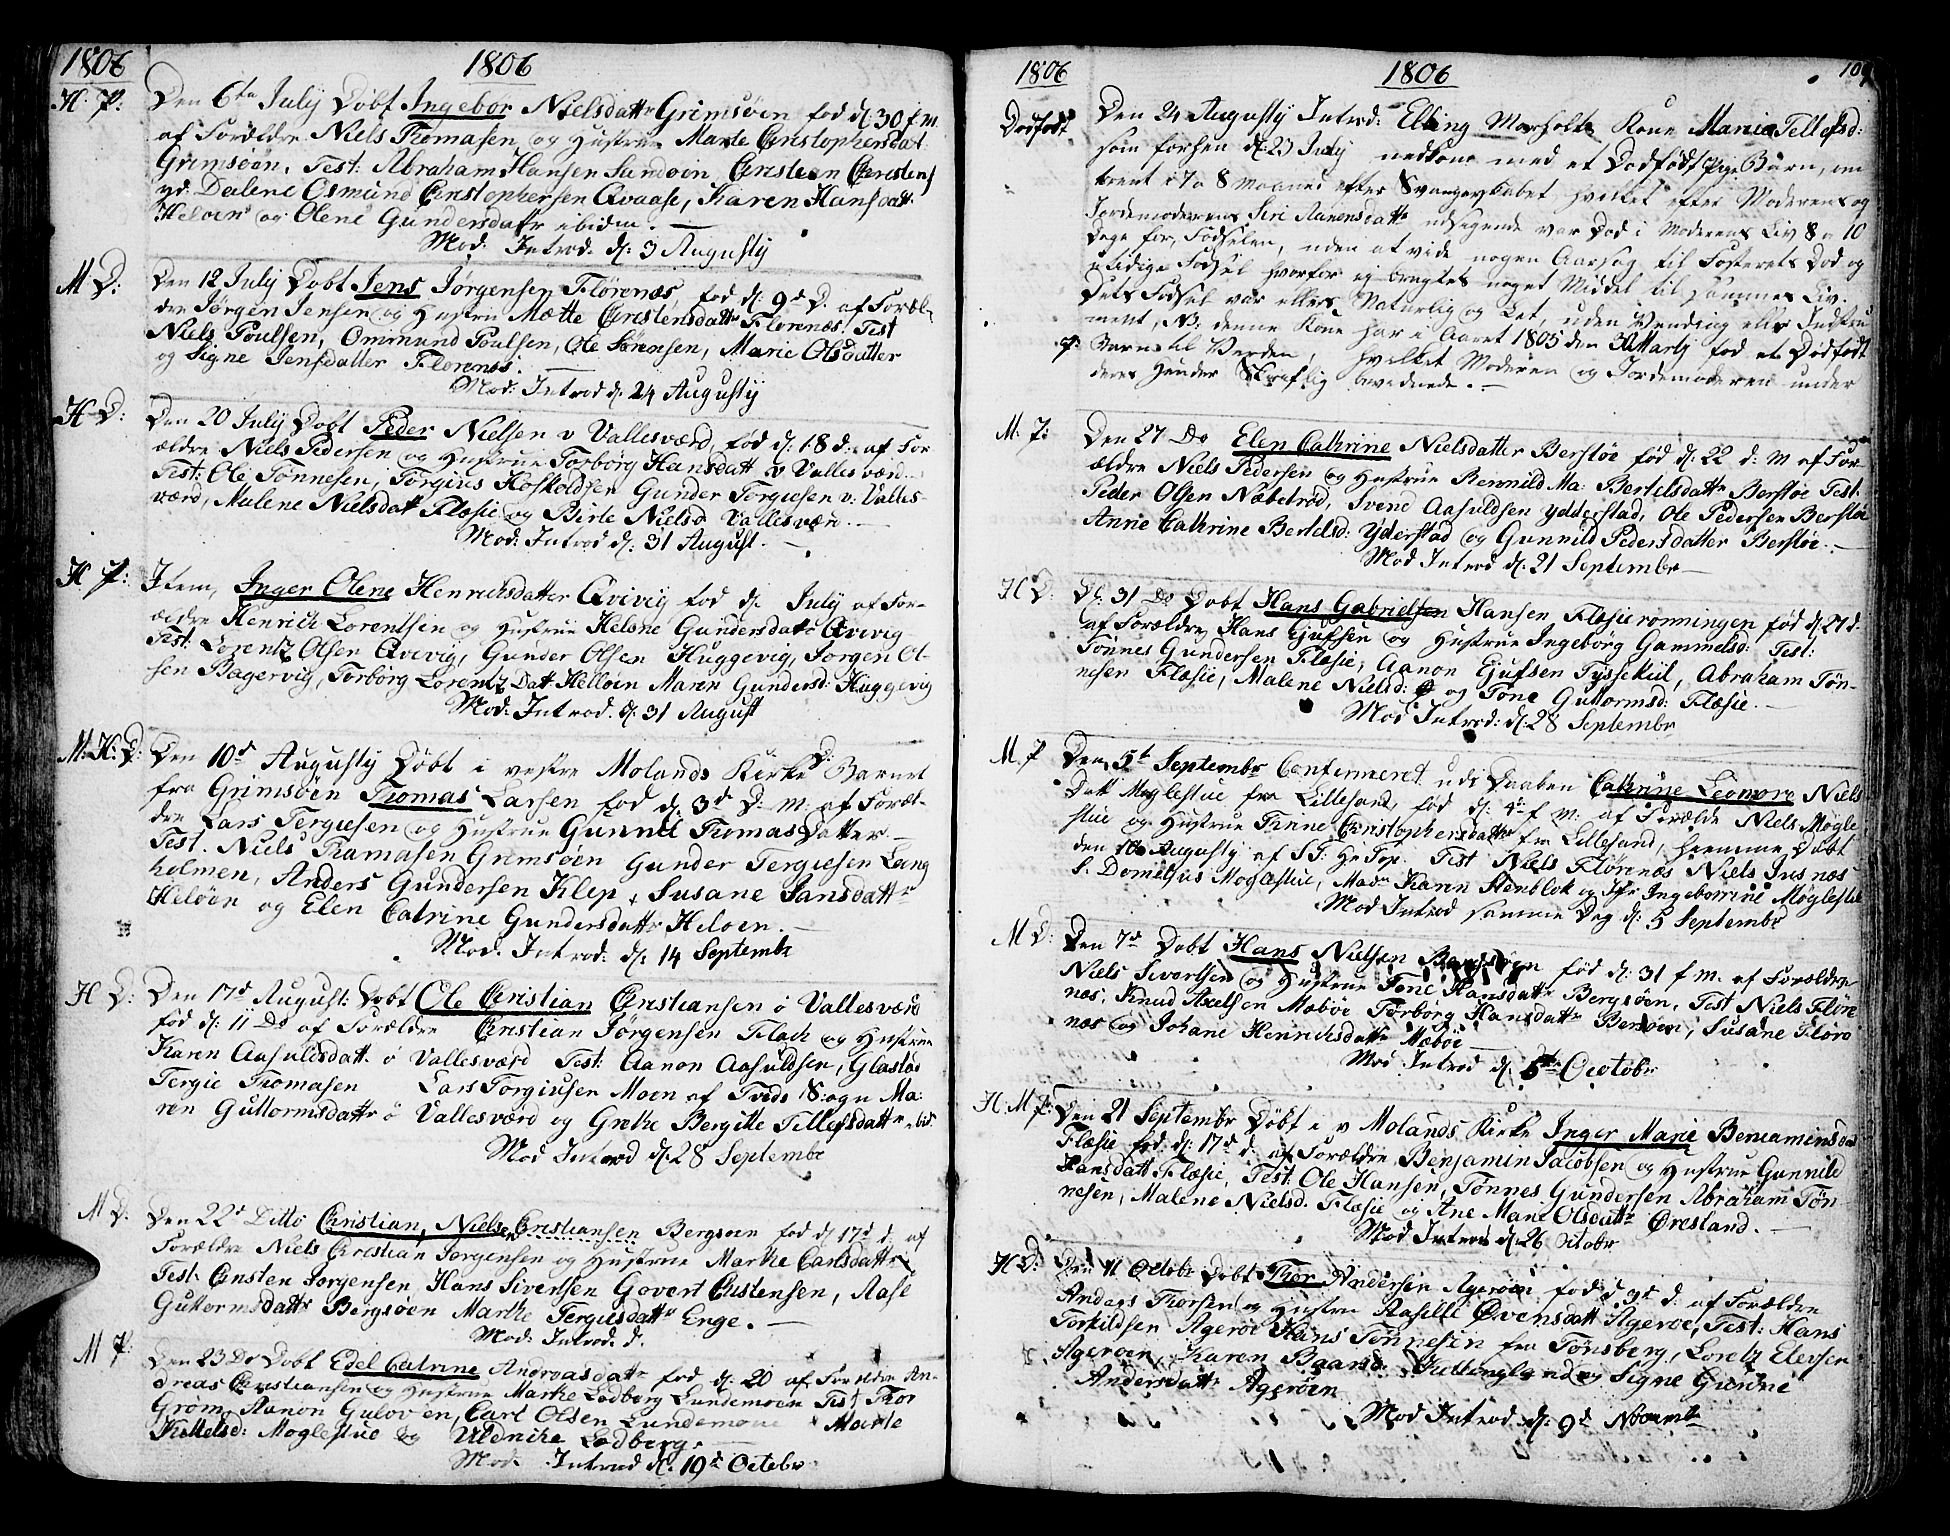 1806 1806
H. P: Den 6te July Døbt Ingebor Nielsdattr Grimsøen fød d: 30 f. m.
af Forældre Niels Thomasen og Hustrue Marte Christophersdat.
Grimsøen. Test: Abraham Hansen Sandøen, Christen Christens
Dalene Osmund Christophersen Qvaase, Karen Hansdatt.
Heløen og Olene Gundersdattr ibidm. —
Mod: Introd. d: 3 Augusty
M D: Den 12 July Døbt Jens Jørgensen Flørenæs, fød d: 9d D. af Foræl-
dre Jørgen Jensen og Hustru Mætte Christensdattr Flørenæs, Test
Niels Poulsen, Ommund Poulsen, Ole Sørensen, Marie Olsdatter
og Signe Jensdatter Flørenæs. —
Mod: Introd d: 24 Augusty
H D: Den 20 July Døbt Peder Nielsen v Vallesværd, fød d: 18 d: af For
ældre Niels Pedersen og Hustrue Torborg Hansdatt v Vallesværd
Test: Ole Tønnesen, Torgius Hoskoldsen Gunder Tergiesen v: Valles-
værd, Malene Nielsdatt Flæsie og Birte Nielsd Vallesvær. —
Mod: Introd d: 31 August. —
H P: Item, Inger Olene Henrichsdatter Qvivig fød d: July af For-
ældre Henrich Lorentsen og Hustrue Helene Gundersdattr Qvivig
Test: Lorentz Olsen Qvivig, Gunder Olsen Huggevig, Jørgen Ol-
sen Bagervig, Torborg Lorentz Datt Helløen Maren Gundersd: Huggevig
Mod: Introd. d: 31 August
M: H: D: Den 10d Augusty Døbt i vestre Molands Kirke D: Barnet
fra Grimsøen Thomas Larsen fød d: 3d D: M: af Foræl-
dre Lars Tergiesen og Hustrue Gunnil Thomas Datter —
Test. Niels Thomasen Grimsøen Gunder Tergiesen Lang
holmen, Anders Gundersen Klep, Susane Jansdattr
Heløen og Elen Catrine Gundersdattr Heløen. —
Mod. Introd: d: 14 Septembr
H D: Den 17d August: Døbt Ole Christian Christiansen ö Vallesværd
fød d: 11 Do af Forældre Christian Jørgensen Flach og Hustrue
Karen Aasuldsdatt. ö Vallesværd Test: Aanon Aasuldsen, Glastad
Tergie Thomasen Lars Torgiusen Moen af Tveds Sogn Ma:
ren Guttormsdattr ö Vallesværd og Grethe Bergitte Tellefsdattr ibid.
Mod Introd d: 28 Septembr
M D: Den 22d Ditto Christian, Nielsen Christiansen Bergsøen fød d 17d d. af
Forældre Niels Christian Jørgensen og Hustrue Marthe Carlsdattr
Test: Christen Jørgensen Hans Sivertsen Govert Christensen, Aase
Guttormsdattr Bergsøen Marthe Tergiesdattr Enge. —
Mod: Introd: d.
M P: Den 23 Do Døbt Edel Catrine Andreasdattr fød d: 20 af Forældre An-
dreas Christiansen og Hustrue Marthe Ledberg Lundemoen Test Thor
Grom, Aanon Guloven, Carl Olsen Lundemoen Marte
Kittelsd: Moglestue og Uldriche Ledberg. —
Mod. Introd d: 19d Octobr
1806 1806
Dødfødt Den 24 Augusty Introd: Elling Morholts Kone Maria Tellefsd:
som forhen d: 23 July nedkom med et Dødfødt Pige Barn, om
trent i 7 a 8 Maaned efter Svangerskabet, hvilket efter Moderens og
Jordemoderens Siri Aanensdattr udsigende var Død i Moderens Liv 8 a 10
Dage for Fødselen, uden at vide nogen Aarsag til Fosterets Død og
utidige Fødsel hvorfor ej brugtes noget Middel til sammes Liv.
Dets Fødsel var ellers Naturlig og Let, uden Vending eller Instru
ment, NB: denne Kone har i Aaret 1805 den 30 Marty fød et Dødfødt
P: Barn til Verden, hvilket Moderen og Jordemoderen under
deres Hænder Skriftlig bevidnede. —
M. P: Den 27 Do Elen Cathrine Nielsdatter Berstøe fød d: 22 d: M af For-
ældre Niels Pedersen og Hustrue Rennild Ma: Bertelsdattr Berstøe Test:
Peder Olsen Nabelrød, Svend Aasuldsen Ydderstad, Ole Pedersen Berstøe
Anne Cathrine Bertelsd: Yderstad og Gunnild Pedersdatter Berstøe. —
Mod Introd d: 21 Septembr —
H D: D: 31 Do Døbt Hans Gabrielsen Hansen, Flæsierønningen fød d: 27 d:
af Forældre Hans Ejufsen og Hustrue Ingeborg Gammelsd: Test:
Tønnes Gundersen Flæsie, Aanon Ejufsen Tyssekiil, Abraham Tøn-
nesen Flæsie, Malene Nielsd: og Tone Guttormsd: Flæsie. —
Mod Introd: d: 28 Septembr
M P Den 5t Septembr Confirmeret udi Daaben Cathrine Leonore Niels
Datt Møglestue fra Lillesand, fød d: 4de f m. af Forælde Niels Møgle
stue og Hustrue Thrine Christophersdattr fra Lillesand, hiemme Døbt
den Augusty af Test Niels Flørenæs Niels Jusnæs
S. Domelius Moglestue, Madm Karen Stenblok og Jfr Ingeborrine Møglestue
Mod Introd samme Dag d: 5 Septembr
M D: Den 7d Døbt Hans Nielsen Bergsøen fød d: 31 f m. af Forældre
Niels Sivertsen og Hustrue Tone Hansdattr Bergsøen, Test Niels Fløre
næs, Knud Axelsen Mæbøe Torborg Hansdattr Bersøen, Susane Fløre
næs og Johane Henrichsdattr Mæbøe —
Mod Introd d: 5te October
H: M P: Den 21 Septembr Døbt i v Molands Kirke Inger Marie Beniaminsdat
Flæsie fød d: 17d d: af Forældre Benjamin Jacobsen og Hustrue Gunnild
Hansdatt Flæsie, Test: Ole Hansen, Tønnes Gundersen Abraham Tøn
nesen, Malene Nielsd. Flæsie og Ane Marie Olsdattr Øresland. —
Mod Introd d: 26 Octobr
H D: Den 11 Octobr Døbt Thor Andersen Agerøen fød d 3d d: af Forældre
Anders Thorsen og Hustru Aaselle Evensdatt Ageroe, Test: Hans
Torkildsen Ageroe Hans Tønnesen fra Tønsberg, Loretz Elevsen
Agerøen, Karen Baarsd. og Signe Gurine
Andersdattr Agerøen
Mod Introd d: 9d Novembr